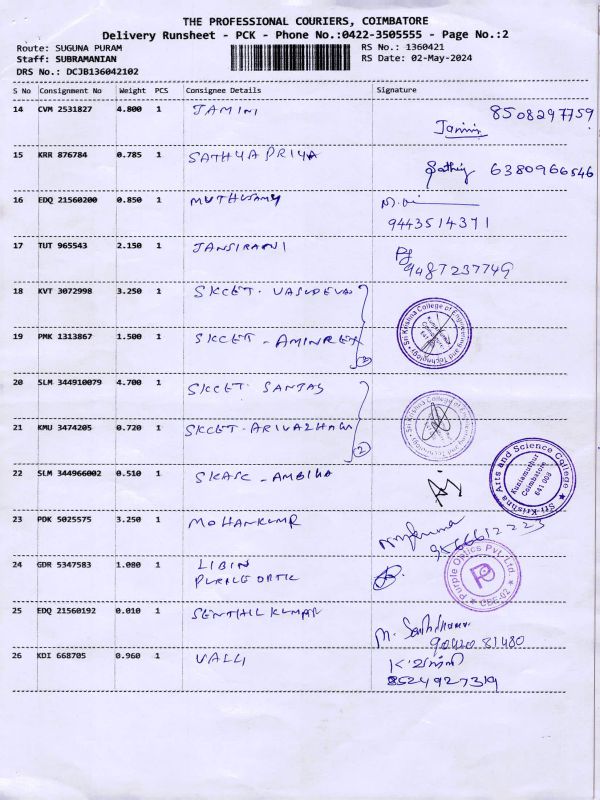 THE PROFESSIONAL COURIERS, COIMBATORE
Delivery Runsheet - PCK - Phone No.:0422-3505555 - Page No.:2
Route: SUGUNA PURAM
Staff: SUBRAMANIAN
DRS No.: DCJB136042102
RS No.: 1360421
RS Date: 02-May-2024
S No Consignment No Weight PCS Consignee Details Signature
14 CVM 2531827 4.800 1 JAMINI 8508297759
Jamini
15 KRR 876784 0.785 1 SATHYAPRIYA 6380966546
16 EDQ 21560200 0.850 1 MUTHUSAMY
9443514371
17 TUT 965543 2.150 1 JANSIRANI
9487237749
18 KVT 3072998 3.250 1 SKCET - VASUDEVAN
Sri Krishna College of Engineering and Technology
19 PMK 1313867 1.500 1 SKCET - AMINREX
20 SLM 344910079 4.700 1 SKCET SANJAY
Sri Krishna College of Engineering and Technology
21 KMU 3474205 0.720 1 SKCET - ARIVAZHAGAN
2
22 SLM 344966002 0.510 1 SKASC - AMBIKA
Sri Krishna Arts and Science College
Kuniamuthur
Coimbatore
641 008
23 PDK 5025575 3.250 1 MOHANKUMR
9566612223
24 GDR 5347583 1.080 1 LIBIN
PURPLE OPTIC
Purple Optics Pvt. Ltd.
CBE-02
25 EDQ 21560192 0.010 1 SENTHIL KUMAR
90420 81480
26 KDI 668705 0.960 1 VALLI
8524927319